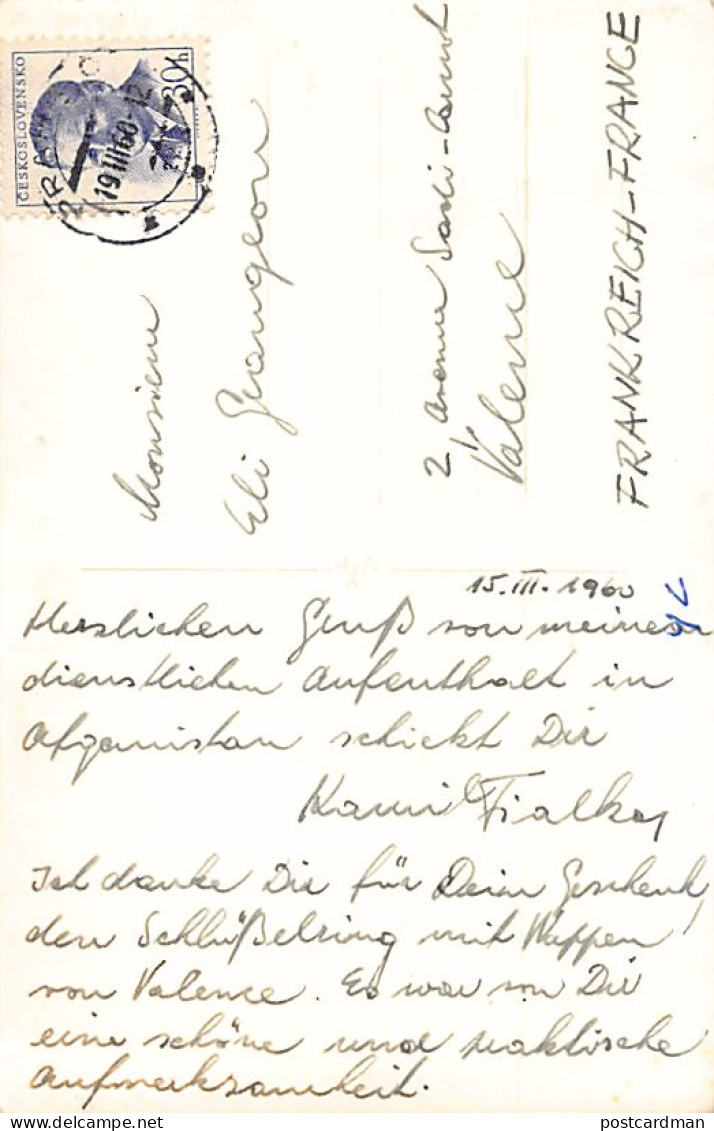 ČESKOSLOVENSKO
30h
19.III.60-12
Monsieur
Eli Grangeon
2, Avenue Sadi-Carnot
Valence
FRANKREICH-FRANCE
15.III.1960
Herzlichen Gruß von meinem
dienstlichen Aufenthalt in
Afganistan schickt Dir
Kamil Fialka
Ich danke Dir für Dein Geschenk,
den Schlüßelring mit Wappen
von Valence. Es war von Dir
eine schöne und praktische
Aufmerksamkeit.
postcardman